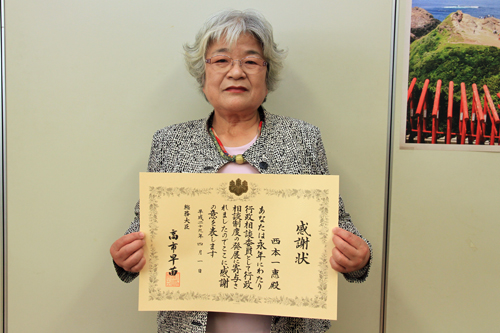 感謝状
西本一惠殿
あなたは永年にわたり
行政相談委員として行政
相談制度の発展に寄与さ
れましたのでここに感謝
の意を表します
平成二十九年四月一日
総務大臣
高市早苗